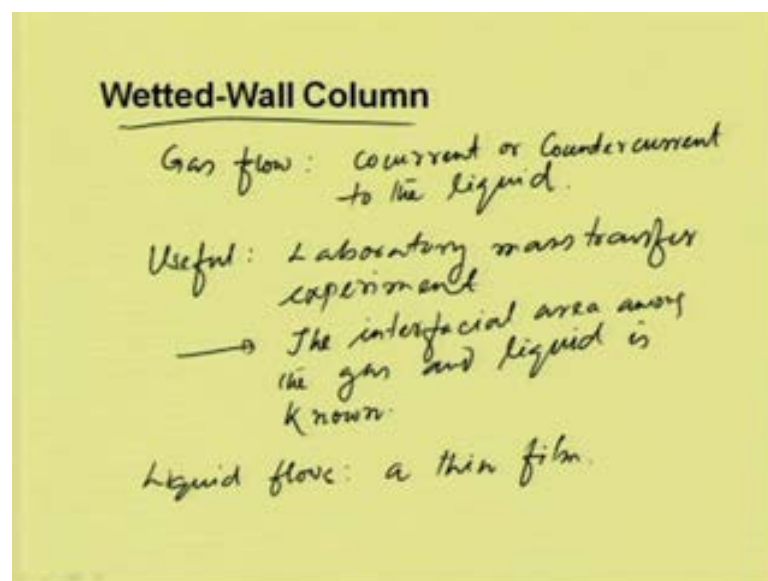 Wetted-Wall Column
Gas flow: cocurrent or Countercurrent
to the liquid.
Useful: Laboratory mass transfer
experiment
→ The interfacial area among
the gas and liquid is
known.
Liquid flow: a thin film.